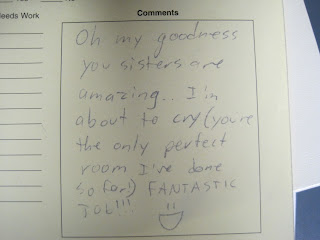 eeds Work
Comments
Oh my goodness
you sisters are
amazing.. I'm
about to cry (you're
the only perfect
room I've done
so far!) FANTASTIC
JOB!!!